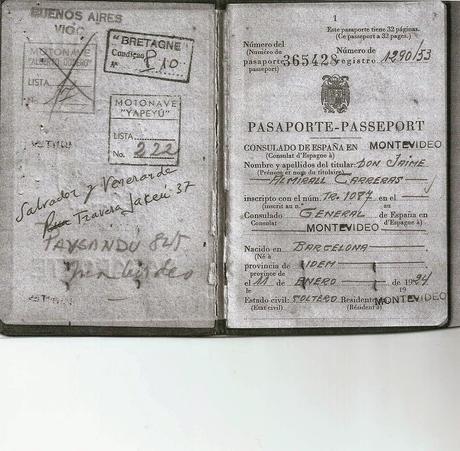 BUENOS AIRES
VIGO
MOTONAVE
LISTA
N.
"BRETAGNE"
Condición
N° P 10
MOTONAVE
"YAPEYÚ"
LISTA
No. 222
Salvador y
Travera 37
PAYSANDU 825
1
Este pasaporte tiene 32 páginas.
(Ce passeport a 32 pages.)
Número del
(Numéro de
pasaporte 365428
passeport)
Número de
registro 1290/53
PASAPORTE-PASSEPORT
CONSULADO DE ESPAÑA EN MONTEVIDEO
(Consulat d'Espagne à)
Nombre y apellidos del titular: DON JAIME
(Prénom et nom du titulaire)
ALMIRALL CARRERAS
inscripto con el núm. TR. 1087 en el
(inscrit au n.°
Consulado GENERAL de España en
Consulat d'Espagne à)
MONTEVIDEO
Nacido en BARCELONA
(Né à
provincia de IDEM
province de
el 11 de ENERO de 1924
le 19
Estado civil: SOLTERO Residente MONTEVIDEO
(Etat civil) (Résident à)